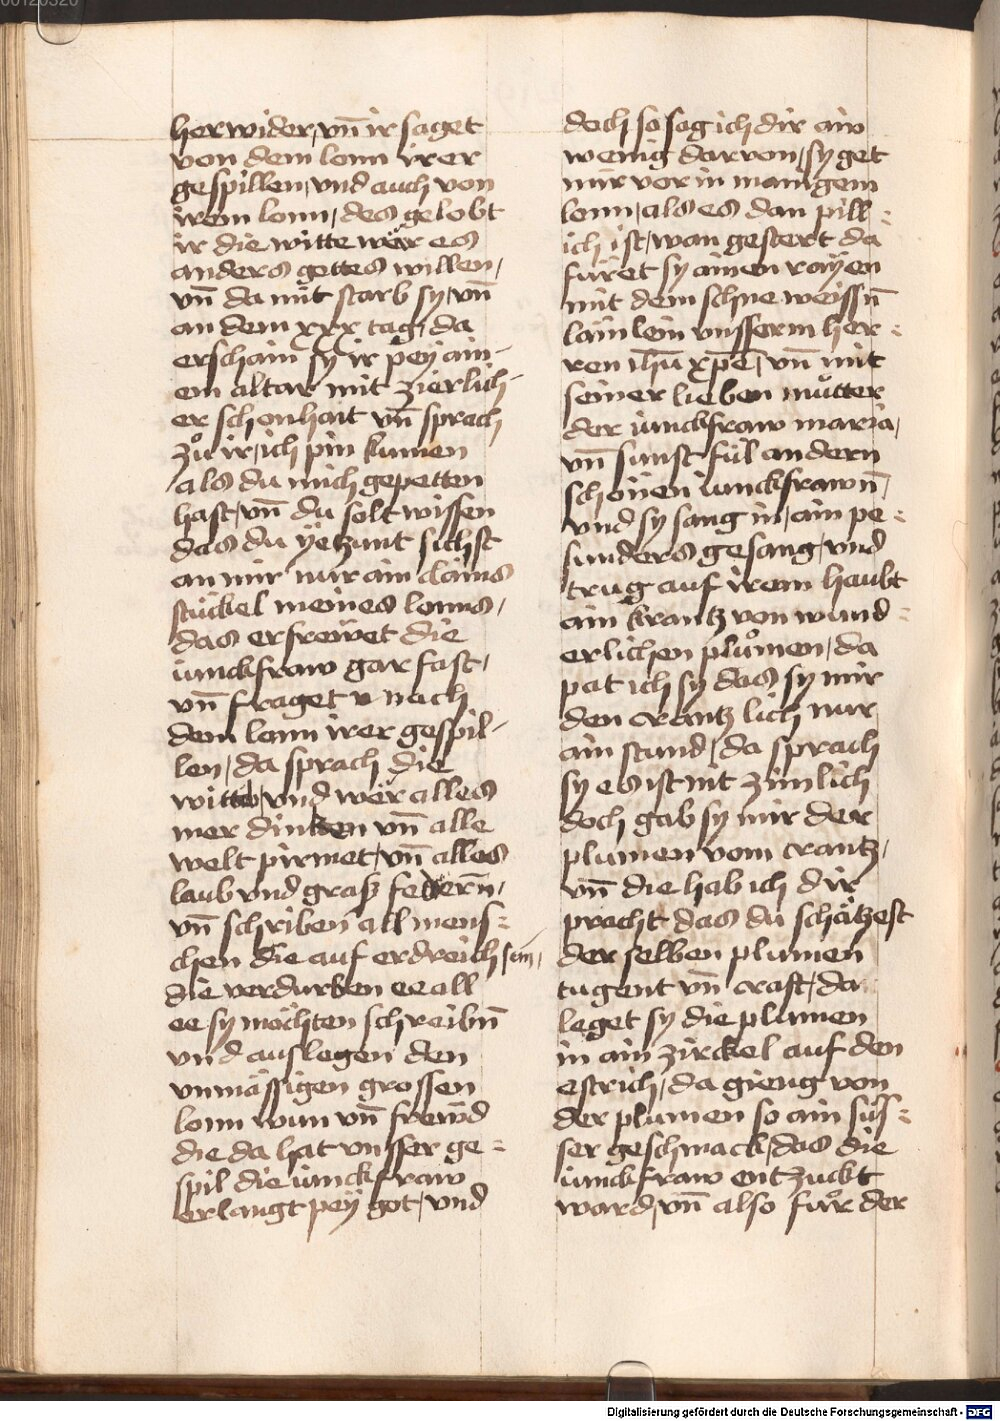 her wider, vn̄ ir saget
von dem lonn irer
gespillen, vnd auch von
irem lonn, des gelobt
ir die witte wär es
anders gottes willen,
vn̄ da mit starb sy, vn̄
an dem xxx tag, da
erschain sy ir pey ain-
em altar mit zierlich-
er schonhait vn̄ sprach
zů ir, ich pin kumen
als du mich gepetten
hast, vn̄ du solt wissen
das du yëtzunt sichst
an mir nur ain clains
stückel meines lonns,
das erfrewet die
iunckfraw gar fast,
vn̄ fraget nach
dem lonn irer gespil-
len, da sprach die
witte, vnd wër alles
mer dinkten vn̄ alle
welt pirmet, vn̄ alles
laub vnd graß federn̄,
vn̄ schriben all mens-
chen die auf erdreich sin,
die verdurben ee all
ee sy möchten schreibn̄
vnd auslegen den
vnmässigen grossen
lonn wun vn̄ frewd
die da hat vnsser ge-
spil die iunckfraw
erlangt peÿ got, vnd
doch so sag ich dir ain
wenig darvon, sy get
mir vor in manigem
lonn, als es dan pill-
ich ist, wan gestert da
füret sy ainen rayen
mit dem schne weissn̄
lämlein vnsserm her-
ren ihū xpē, vn̄ mit
seiner lieben mütter
der iunckfraw maria,
vn̄ sunst fül andern
schönen iunckfrawn̄,
vnd sy sang in, ain pe-
sunders gesang, vnd
trug auf irem haubt
ain krantz von wund-
erlichen plůmen, da
pat ich sy das sy mir
den crantz lich nur
ain stund, da sprach
sy es ist nit zimlich
doch gab sy mir der
plumen vom crantz,
vn̄ die hab ich dir
pracht das du schätzest
der selben plumen
tugent vn̄ craft, da
leget sy die plumen
in ain zirckel auf den
estrich, da gieng von
der plumen so ain süs-
ser geschmack, das die
iunckfraw entzuckt
ward, vn̄ also fůr der
Digitalisierung gefördert durch die Deutsche Forschungsgemeinschaft - DFG